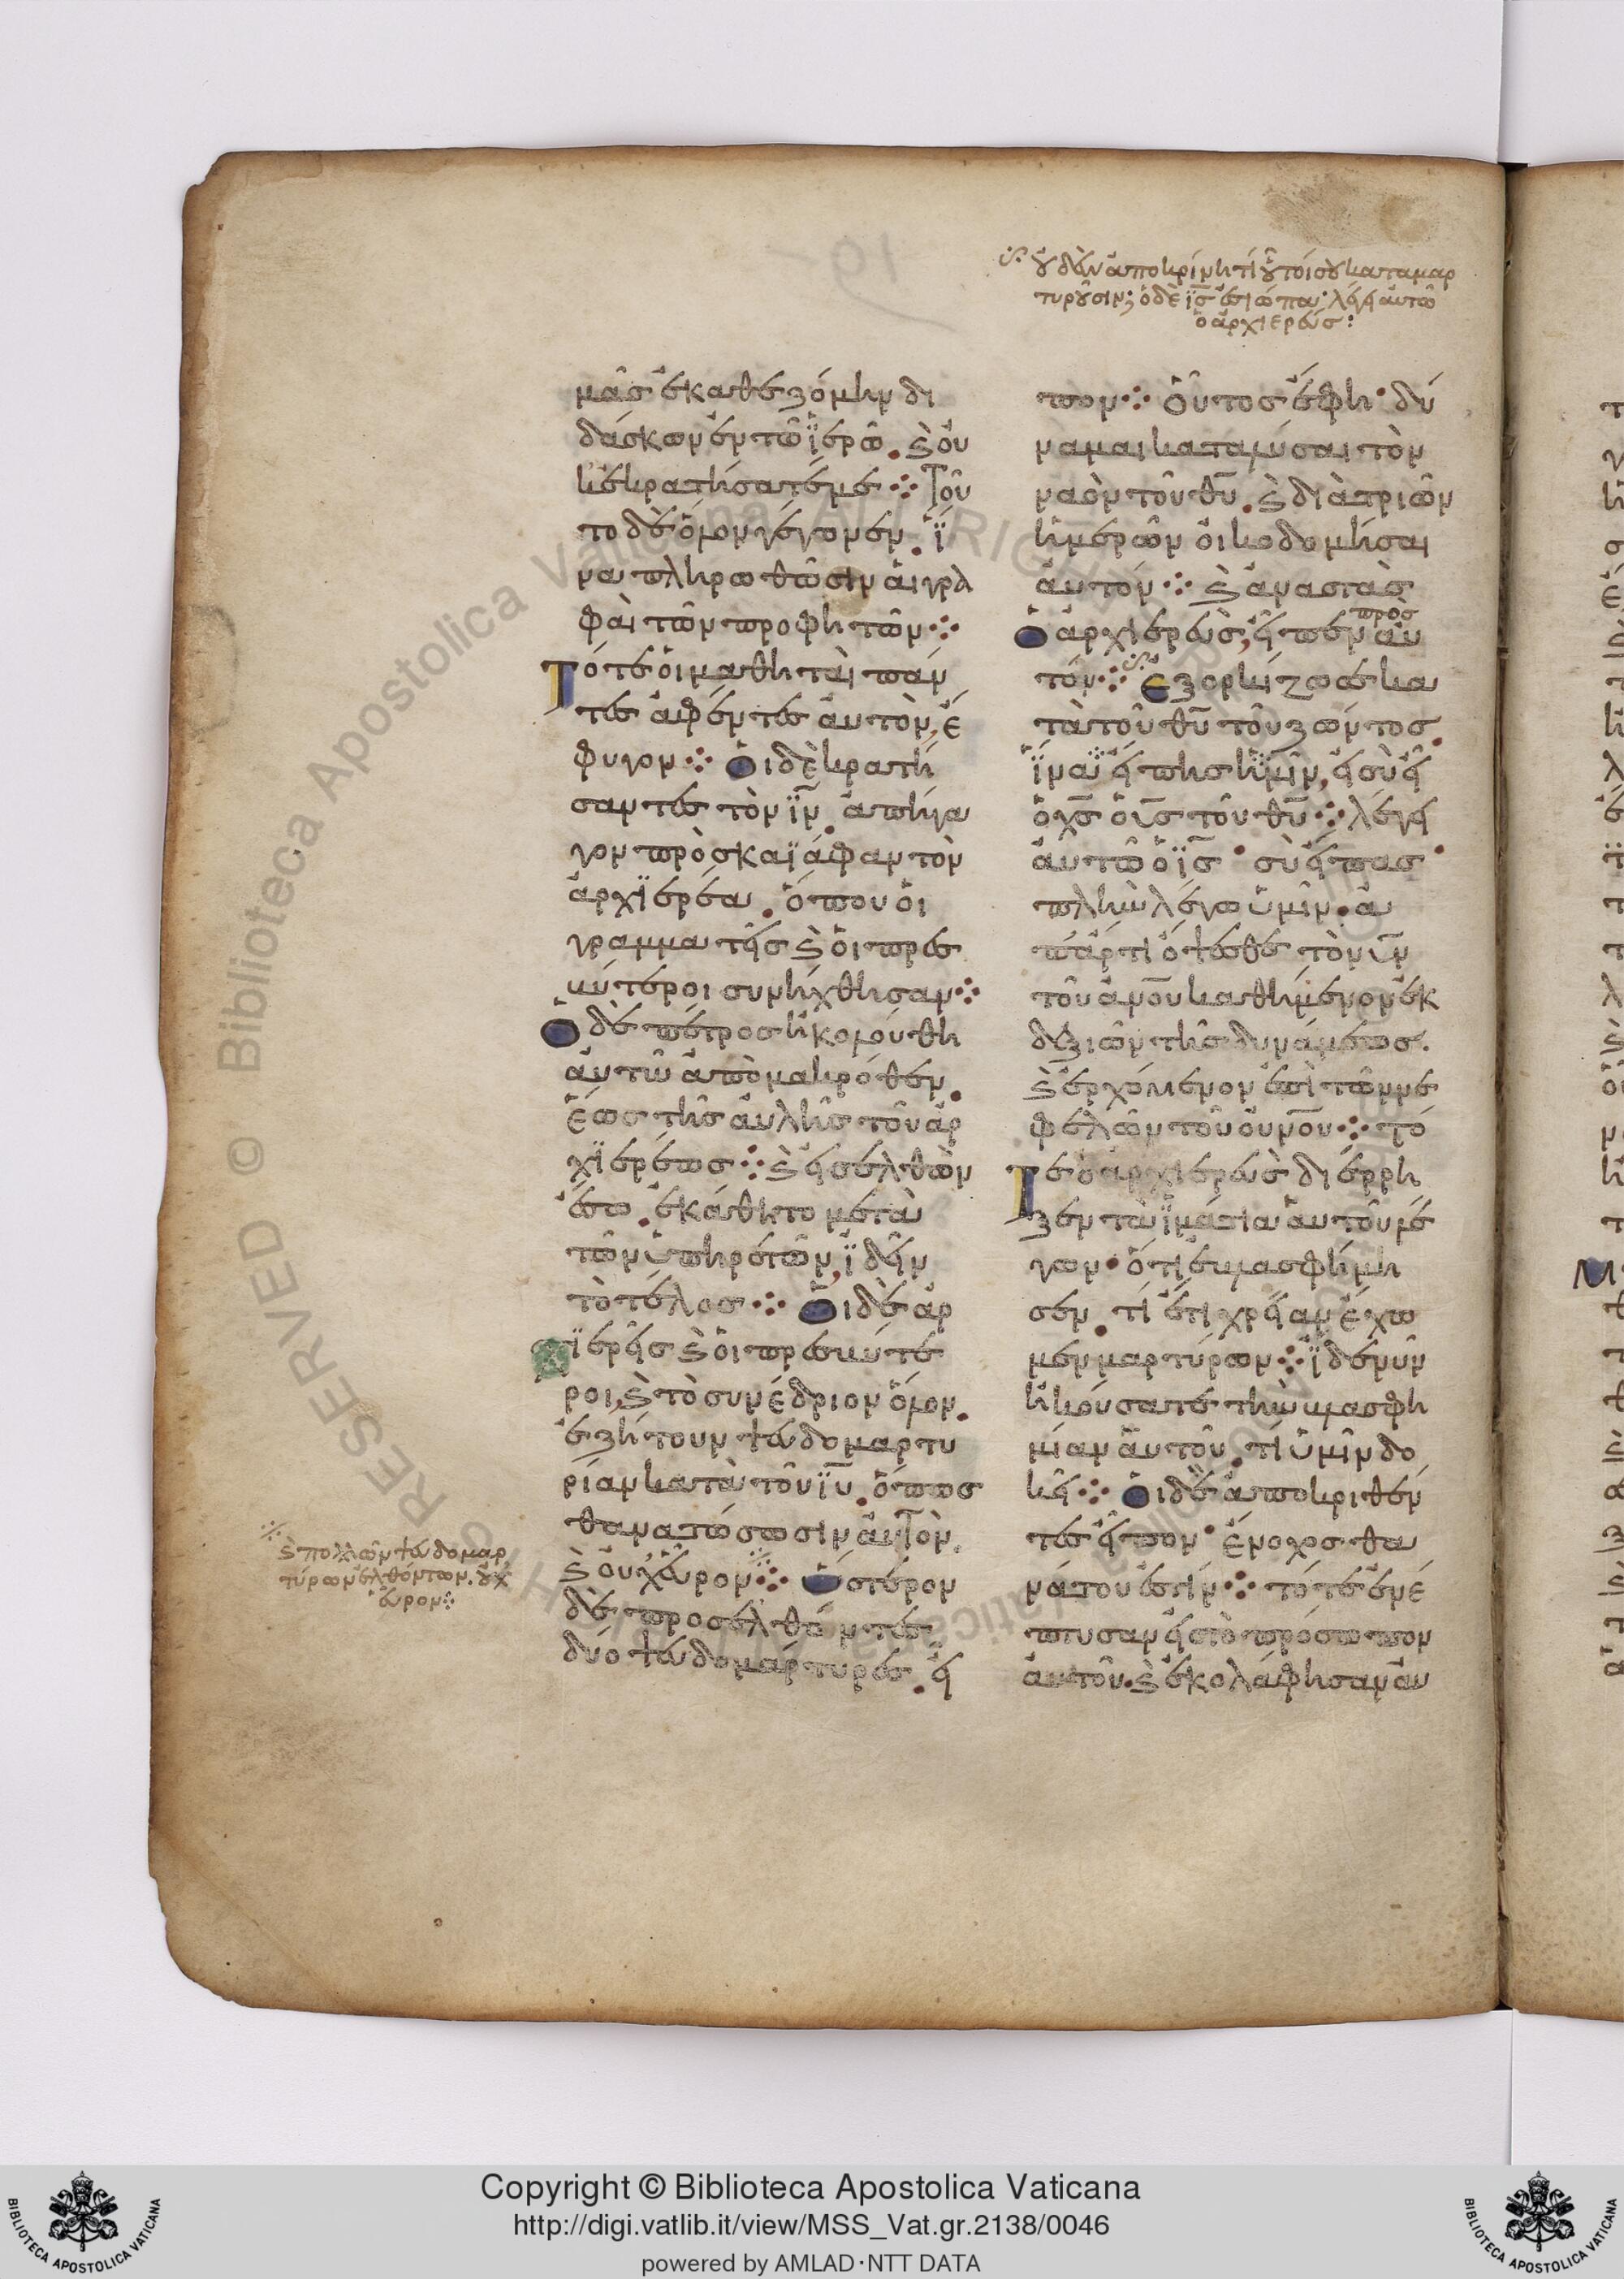 οὐδὲν ἀποκρίνη τί οὗτοί σου καταμαρ
τυροῦσιν; ὁ δὲ ις̅ ἐσιώπα· λέγει αὐτῶ
ὁ ἀρχιερεύς:
μᾶς ἐκαθεζόμην δι
δάσκων ἐν τῶ ϊερῶ. ϗ οὐ
κ ἐκρατήσατέ με ⁘ Τοῦ
το δὲ ὅλον γέγονεν. ἵ
να πληρωθῶσιν αἱ γρα
φαὶ τῶν προφητῶν ⁘
Τότε οἱ μαθηταὶ πάν
τες ἀφέντες αὐτὸν, ἔ
φυγον ⁘ Οἱ δὲ κρατή
σαντες τὸν ιν̅. ἀπήγα
γον πρὸς καϊάφαν τὸν
ἀρχϊερέα. ὅπου οἱ
γραμματεῖς ϗ οἱ πρεσ
βύτεροι συνήχθησαν ⁘
Ὁ δὲ πέτρος ἠκολούθη
αὐτῶ ἀπὸ μακρόθεν.
ἕως τῆς αὐλῆς τοῦ ἀρ
χϊερέως ⁘ ϗ εἰσελθὼν
ἔσω. ἐκάθητο μετὰ
τῶν ὑπηρετῶν, ἰδεῖν
τὸ τέλος ⁘ Οἱ δὲ ἀρ
χϊερεῖς ϗ οἱ πρεσβύτε
ροι, ϗ τὸ συνέδριον ὅλον.
ἐζήτουν ψευδομαρτυ
ρίαν κατὰ τοῦ ιυ̅. ὅπως
θανατώσωσιν αὐτὸν.
ϗ οὐχ εὗρον ⁘ Ὕστερον
δὲ προσελθόντες
δύο ψευδομάρτυρες. εἶ
ϗ πολλῶν ψευδομαρ
τύρων ἐλθόντων. οὐχ
εὗρον ⁘
πον ⁘ Οὗτος ἔφη· δύ
ναμαι καταλύσαι τὸν
ναὸν τοῦ θυ̅. ϗ διὰ τριῶν
ἡμερῶν οἰκοδομῆσαι
αὐτόν ⁘ ϗ ἀναστὰς
ὁ ἀρχιερεὺς, εἶπεν πρὸς αὐ
τόν ⁘ Ἐξορκίζω σε κα
τὰ τοῦ θυ̅ τοῦ ζῶντος.
ἵνα εἴπης ἡμῖν, εἰ σὺ εἶ
ὁ χς̅ ὁ υς̅ τοῦ θυ̅ ⁘ λέγει
αὐτῶ ὁ ις̅· σὺ εἶπας·
πλὴν λέγω ὑμῖν. ἀ
π᾽ ἄρτι ὄψεσθε τὸν υν̅
τοῦ ανου̅ καθήμενον ἐκ
δεξιῶν τῆς δυνάμεως.
ϗ ἐρχόμενον ἐπὶ τῶν νε
φελῶν τοῦ ουνου̅ ⁘ τό
τε ὁ ἀρχιερεὺς διέρρη
ξεν τὰ ἱμάτια αὐτοῦ λέ
γων· ὅτι ἐβλασφήμη
σεν. τί ἔτι χρείαν ἔχο
μεν μαρτύρων ⁘ ἴδε νῦν
ἠκούσατε τὴν βλασφη
μίαν αὐτοῦ. τί ὑμῖν δο
κεῖ ⁘ Οἱ δὲ ἀποκριθέν
τες εἶπον· ἔνοχος θα
νάτου ἐστίν ⁘ τότε ἐνέ
πτυσαν εἰς τὸ πρόσωπον
αὐτοῦ. ϗ ἐκολάφησαν αὐ
Copyright © Biblioteca Apostolica Vaticana
http://digi.vatlib.it/view/MSS_Vat.gr.2138/0046
powered by AMLAD·NTT DATA